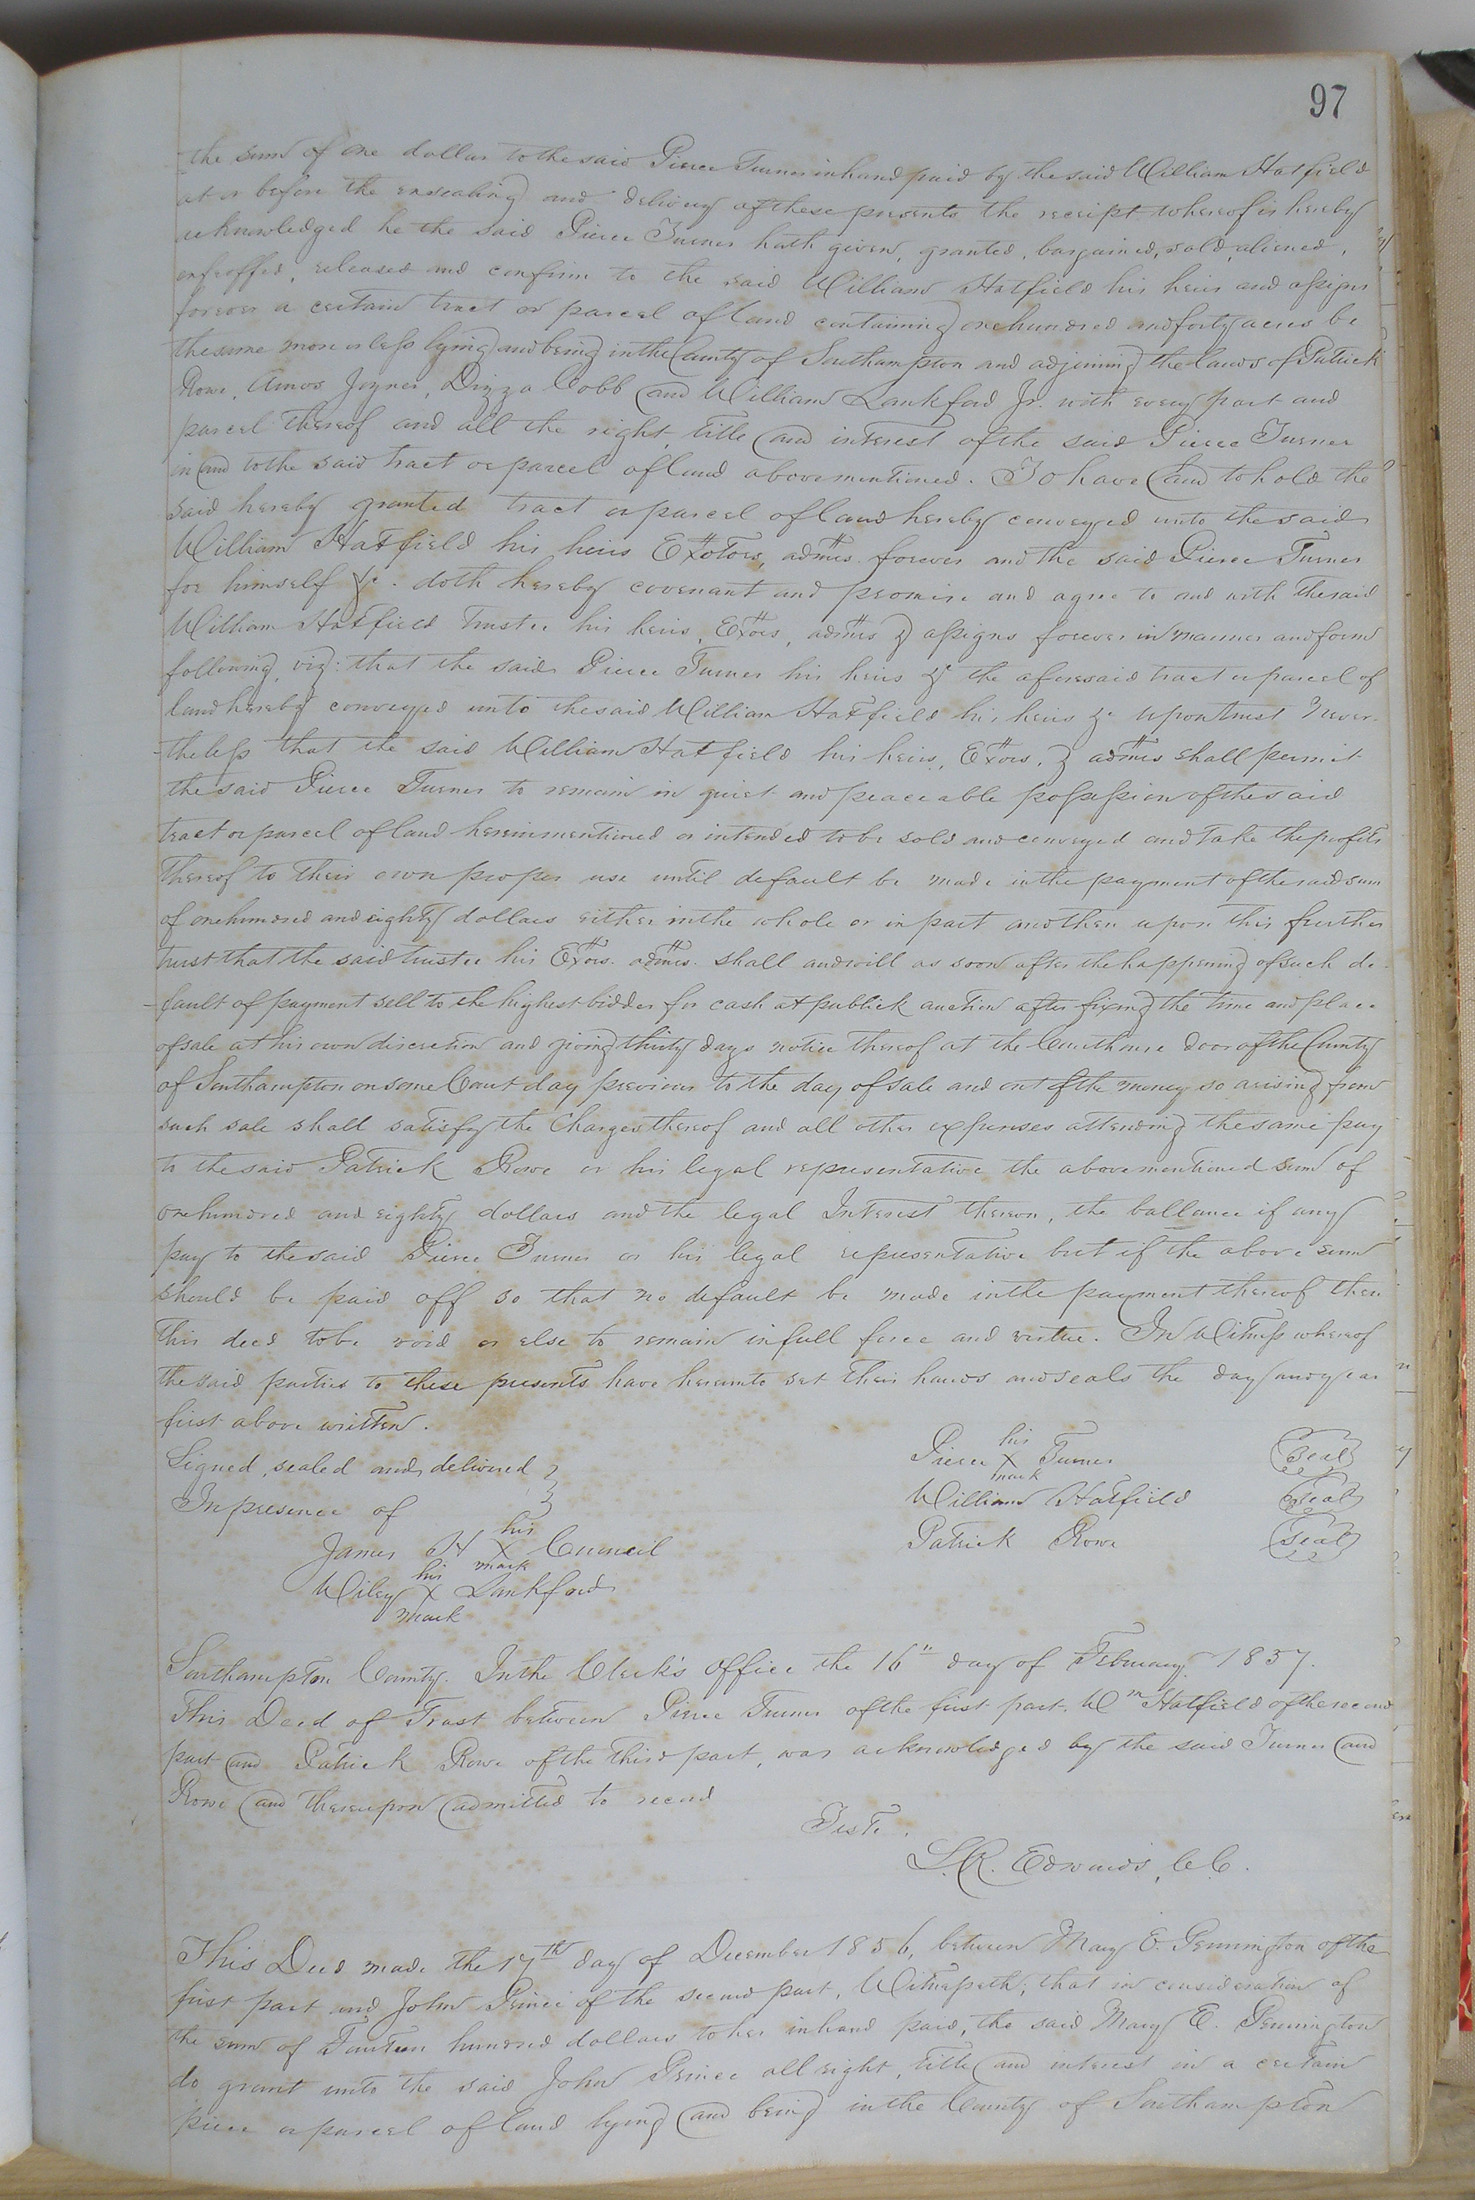 97
the sum of one dollar to the said Pierce Turner in hand paid by the said William Hatfield
at or before the ensealing and delivery of these presents the receipt whereof is hereby
acknowledged he the said Pierce Turner hath given, granted, bargained, sold, aliened,
enfeoffed, released and confirm to the said William Hatfield his heirs and assigns
forever a certain tract or parcel of land containing one hundred and forty acres be
the same more or less lying and being in the County of Southampton and adjoining the lands of Patrick
Rowe, Amos Joyner, Dizza Cobb and William Lankford Jr. with every part and
parcel thereof and all the right, title and interest of the said Pierce Turner
in and to the said tract or parcel of land above mentioned. To have and to hold the
said hereby granted tract or parcel of land hereby conveyed unto the said
William Hatfield his heirs Exotors, admrs. forever and the said Pierce Turner
for himself &c. doth hereby covenant and promise and agree to and with the said
William Hatfield trustee his heirs, Exors, admrs & assigns forever in manner and form
following, viz: that the said Pierce Turner his heirs &c the aforesaid tract or parcel of
land hereby conveyed unto the said William Hatfield his heirs &c upon trust never-
-theless that the said William Hatfield his heirs, Exors, & admrs shall permit
the said Pierce Turner to remain in quiet and peaceable possession of the said
tract or parcel of land herein mentioned or intended to be sold and conveyed and take the profits
thereof to their own proper use until default be made in the payment of the said sum
of one hundred and eighty dollars either in the whole or in part and then upon this further
trust that the said trustee his Exors. admrs. shall and will as soon after the happening of such de-
-fault of payment sell to the highest bidder for cash at publick auction after fixing the time and place
of sale at his own discretion and giving thirty days notice thereof at the Courthouse door of the County
of Southampton on some Court day previous to the day of sale and out of the money so arising from
such sale shall satisfy the Charges thereof and all other expenses attending the same pay
to the said Patrick Rowe or his legal representative the above mentioned sum of
one hundred and eighty dollars and the legal Interest thereon, the ballance if any
pay to the said Pierce Turner or his legal representative but if the above sum
should be paid off so that no default be made in the payment thereof then
this deed to be void or else to remain in full force and virtue. In Witness whereof
the said parties to these presents have hereunto set their hands and seals the day and year
first above written.
Signed, sealed and delivered
In presence of
James H his X mark Council
Wiley his X mark Lankford
Pierce his X mark Turner Seal
William Hatfield Seal
Patrick Rowe Seal
Southampton County. In the Clerk's Office the 16" day of February 1857.
This Deed of Trust between Pierce Turner of the first part. Wm Hatfield of the second
part and Patrick Rowe of the third part, was acknowledged by the said Turner and
Rowe and thereupon admitted to record
Teste.
L. R. Edwards, C.C.
This Deed made the 17th day of December 1856, between Mary E. Pennington of the
first part and John Prince of the second part, Witnesseth; that in consideration of
the sum of Fourteen hundred dollars to her in hand paid, the said Mary E. Pennington
do grant unto the said John Prince all right, title and interest in a certain
piece or parcel of land lying and being in the County of Southampton